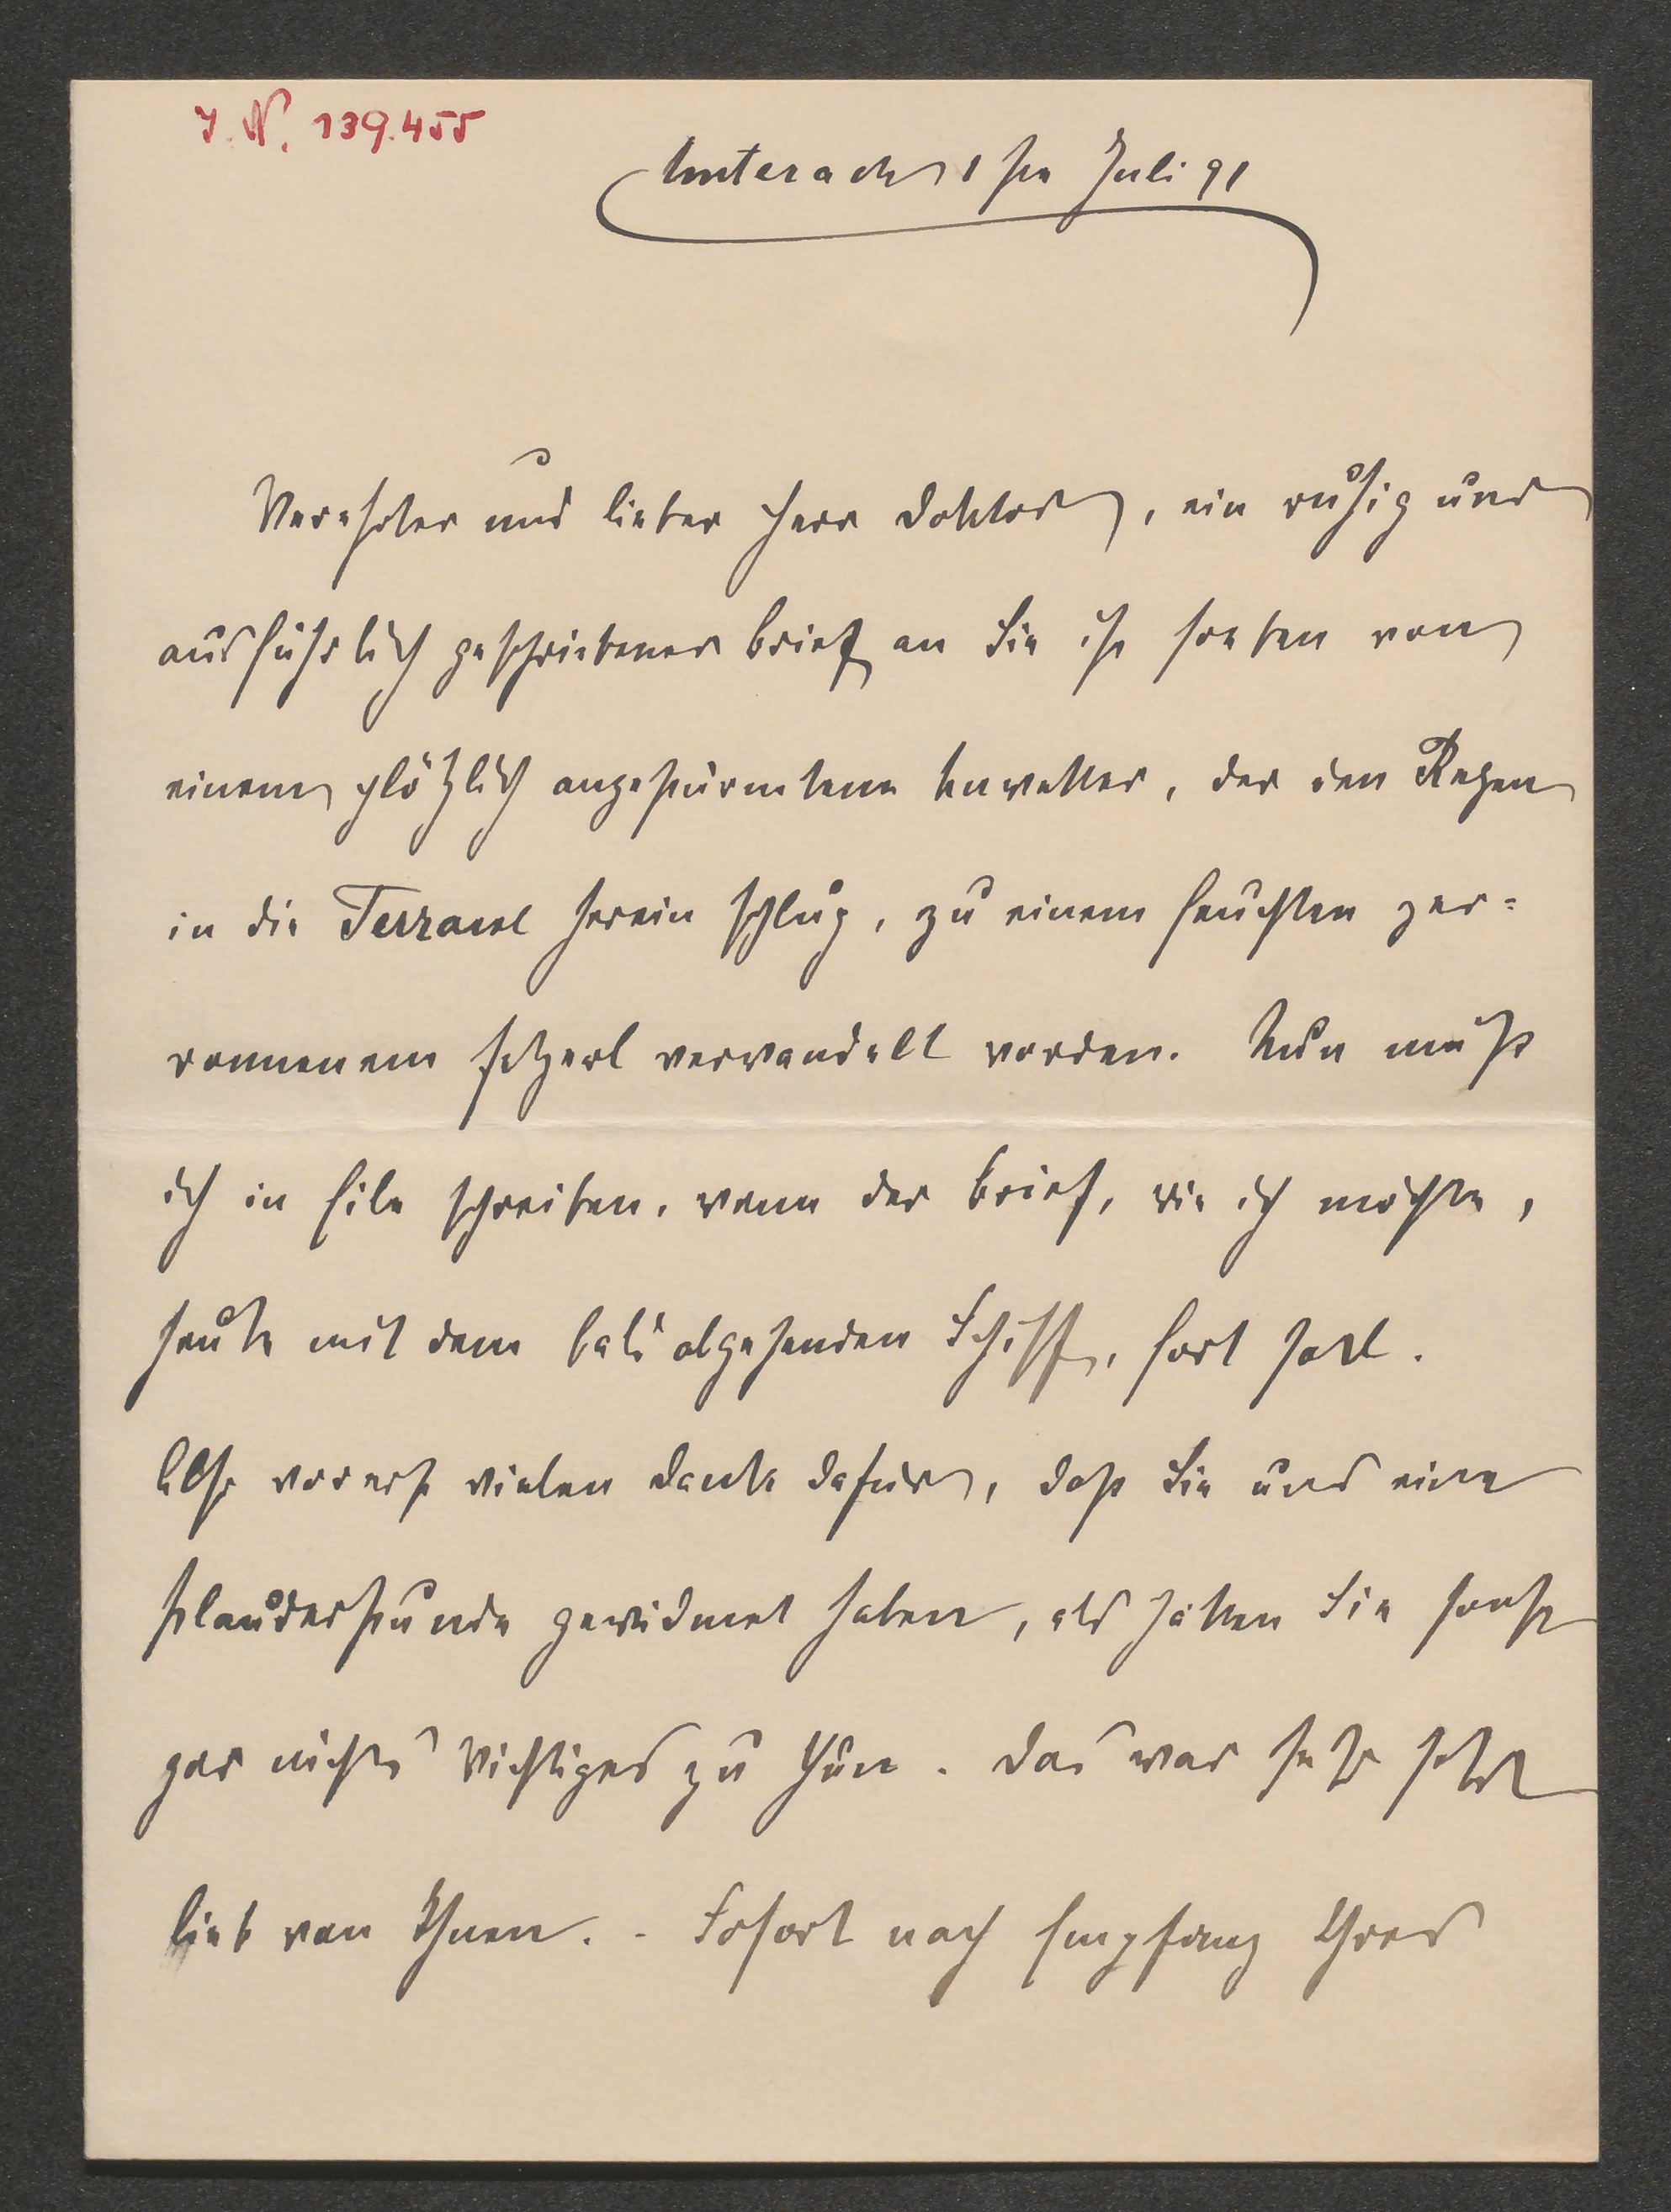 I. N. 139.455
Unterach 1ten Juli 91
Verehrter und lieber Herr Doktor, ein ruhig und
ausführlich geschriebener Brief an Sie ist soeben von
einem plötzlich angestürmtem Unwetter, der den Regen
in die Terrasse herein schlug, zu einem feuchten zer=
ronnenem Fetzerl verwandelt worden. Nun muß
ich in Eile schreiben, wenn der Brief, wie ich möchte,
heute mit dem bald abgehenden Schiff, fort soll.
Also vorerst vielen Dank dafür, daß Sie uns eine
Plauderstunde gewidmet haben, als hätten Sie sonst
gar nichts Wichtiges zu thun. Das war sehr sehr
lieb von Ihnen. - Sofort nach Empfang Ihres